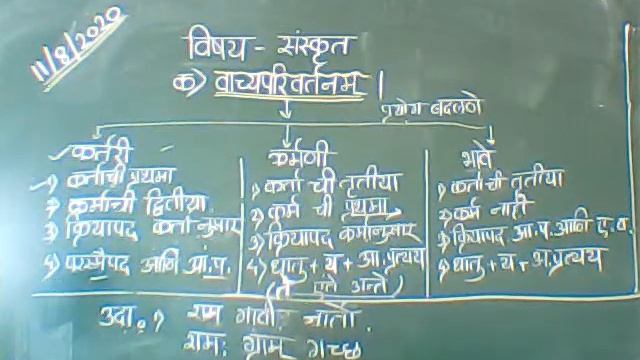 11/8/2020
विषय - संस्कृत
क) वाच्यपरिवर्तनम् |
प्रयोग बदलणे
कर्तरी
१) कर्ताची प्रथमा
२) कर्माची द्वितीया
३) क्रियापद कर्तानुसार
४) परस्मैपद आणि आ.प.
कर्मणी
१) कर्ता ची तृतीया
२) कर्म ची प्रथमा
३) क्रियापद कर्मानुसार
४) धातु + य + आ.प्रत्यय
(ते एते अन्ते)
भावे
१) कर्ताची तृतीया
२) कर्म नाही
३) क्रियापद आ.प. आणि ए.व.
४) धातु + य + आ.प्रत्यय
उदा., राम गावी जातो.
रामः ग्राम गच्छ